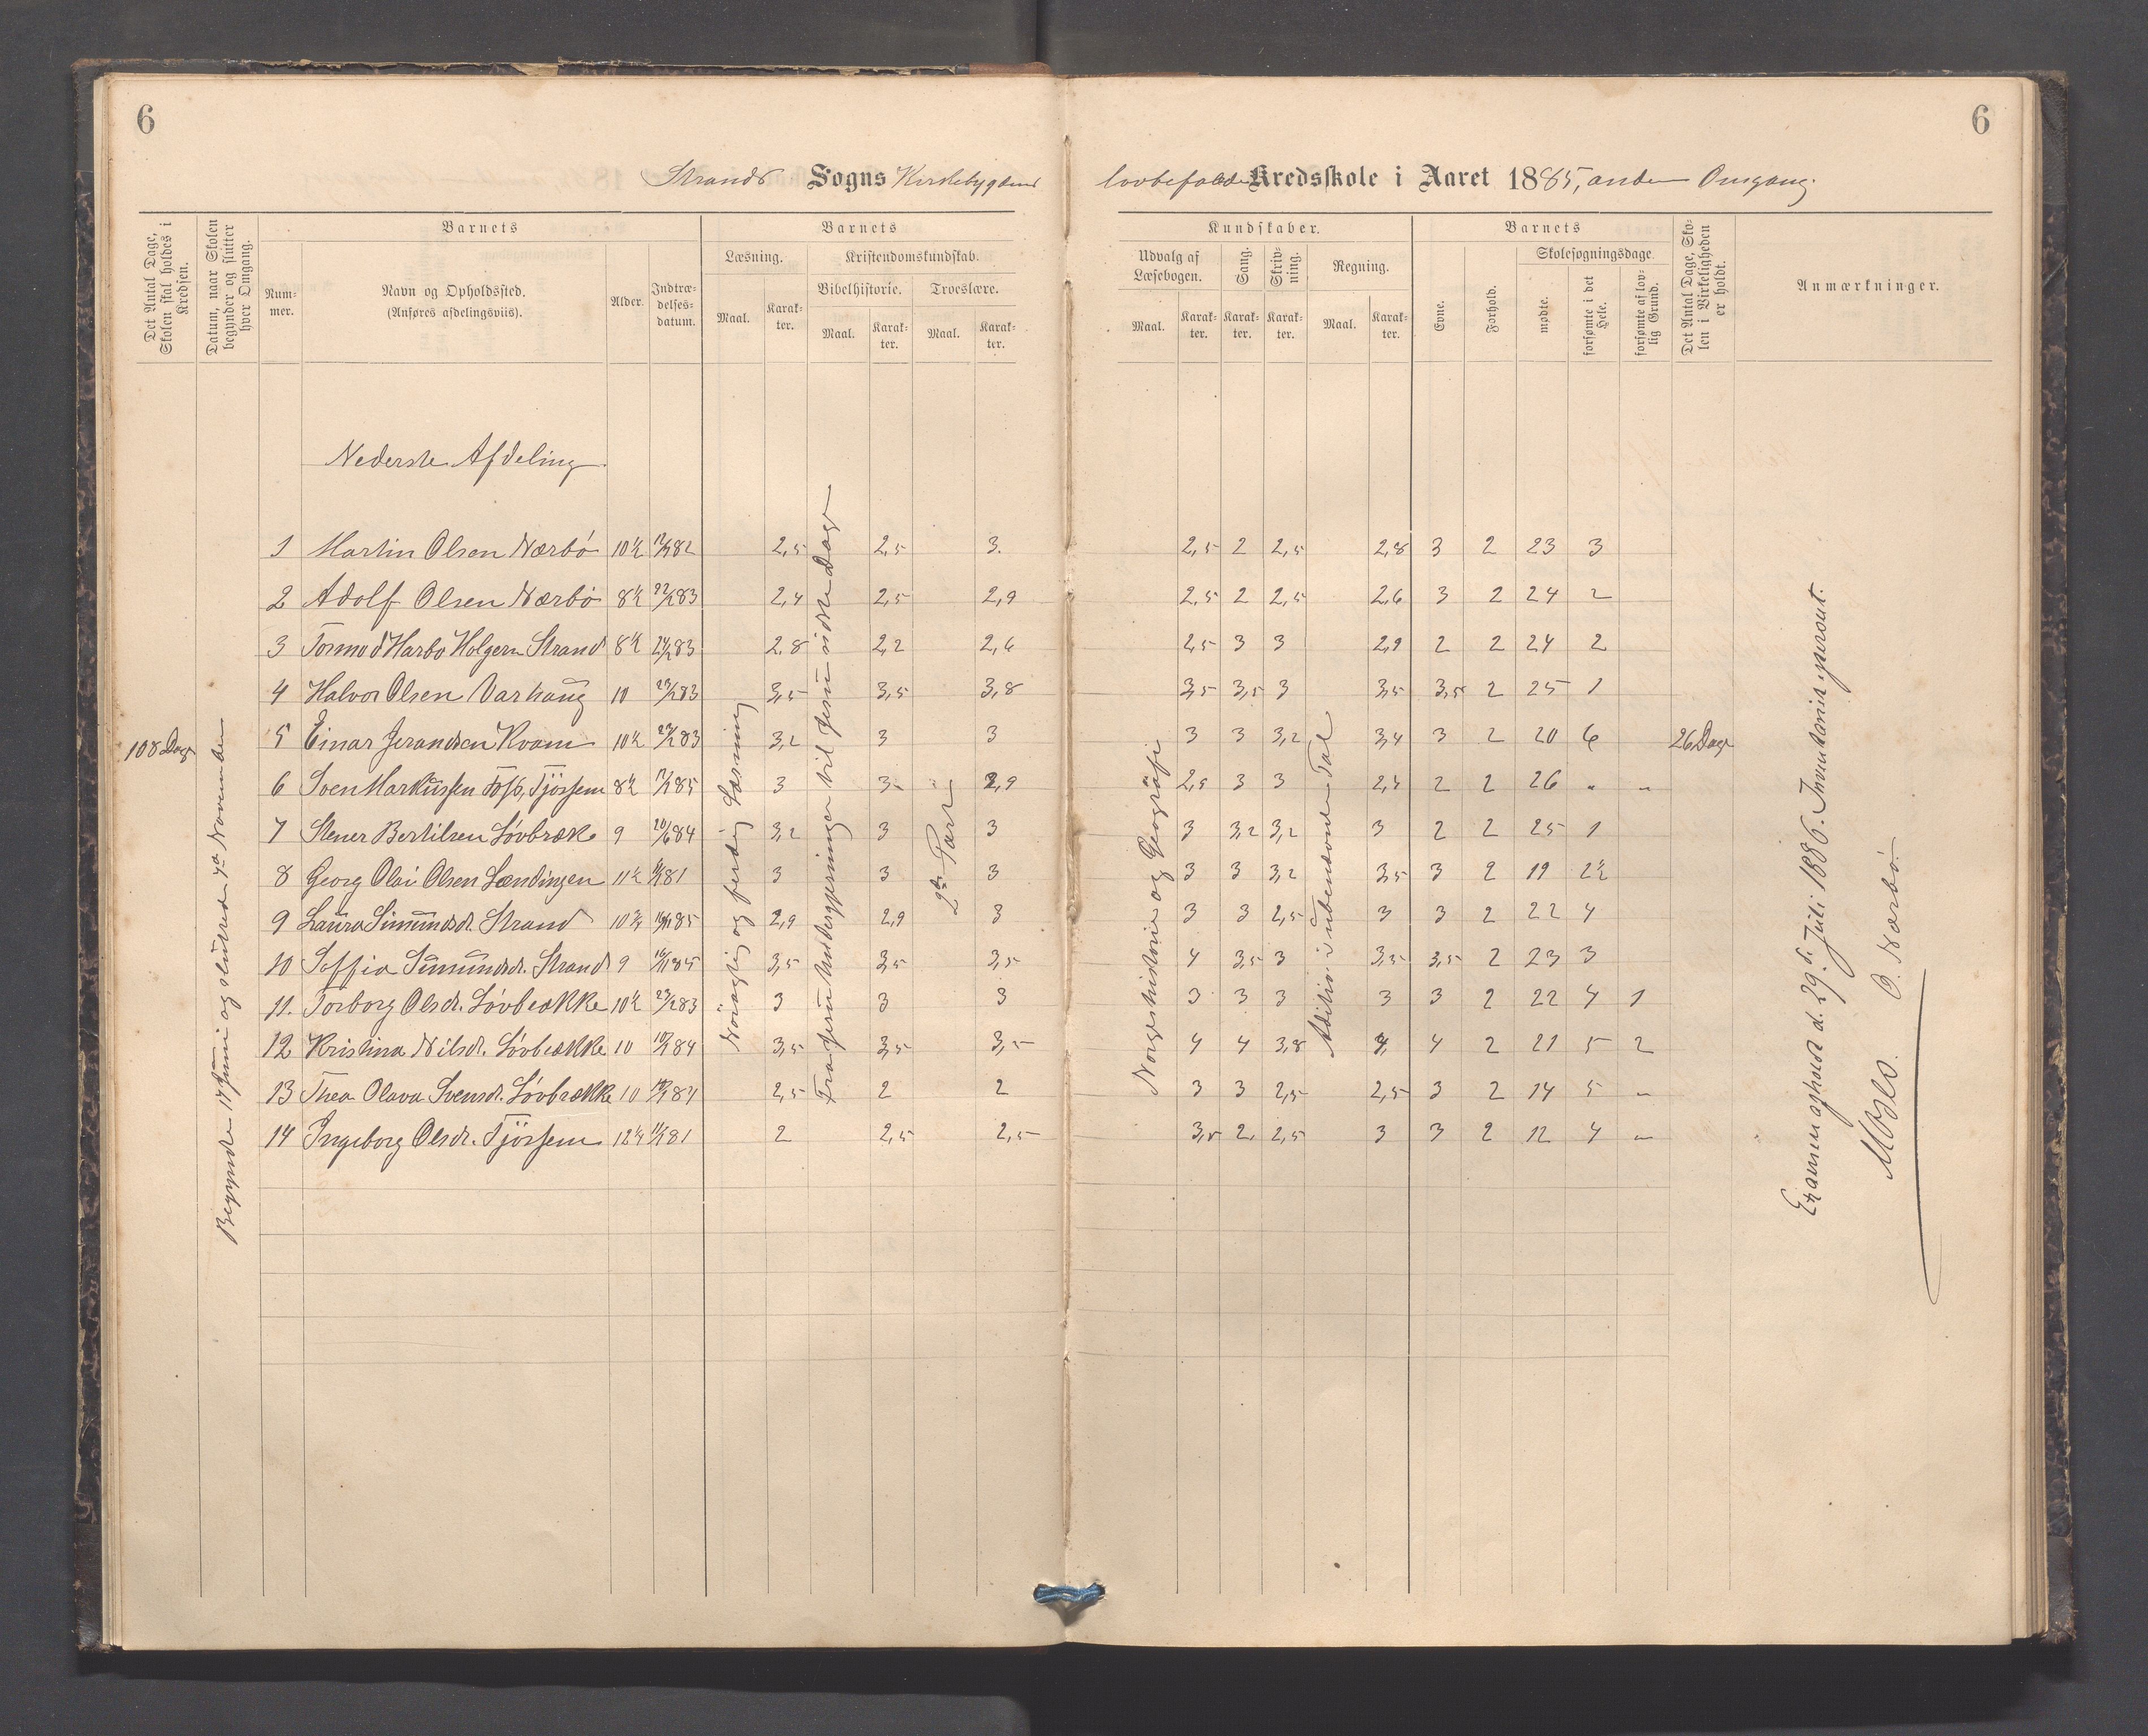 6
6
Strands Sogns Kirkebygdens
lovbefalede Kredsskole i Aaret 1885, anden Omgang.
Det Antal Dage, Skolen skal holdes i Kredsen.
Datum, naar Skolen begynder og slutter hver Omgang.
Barnets
Num-
mer.
Navn og Opholdssted.
(Anføres afdelingsviis).
Alder.
Indtræ-
delses-
datum.
Barnets
Læsning.
Maal.
Karak-
ter.
Kristendomskundskab.
Bibelhistorie.
Maal.
Karak-
ter.
Troeslære.
Maal.
Karak-
ter.
Kundskaber.
Udvalg af
Læsebogen.
Maal.
Karak-
ter.
Sang.
Karak-
ter.
Skriv-
ning.
Karak-
ter.
Regning.
Maal.
Karak-
ter.
Barnets
Evne.
Forhold.
Skolesøgningsdage
mødte.
forsømte i det Hele.
forsømte af lov-
lig Grund.
Det Antal Dage, Sko-
len i Virkeligheden
er holdt.
Anmærkninger.
Nederste Afdeling
1 Martin Olsen Nærbö 10½ 82 2,5 2,5 3. 2,5 2 2,5 2,8 3 2 23 3
2 Adolf Olsen Nærbö 8½ 83 2,4 2,5 2,9 2,5 2 2,5 2,6 3 2 24 2
3 Tormod Harbo Holgersen Strand 8½ 83 2,8 2,2 2,6 2,5 3 3 2,9 2 2 24 2
4 Halvor Olsen Varhaug 10 83 3,5 3,5 3,8 3,5 3,5 3 3,5 3,5 2 25 1
5 Einar Jerandsen Kvam 10½ 83 3,2 3 3 3 3 3,2 3,4 3 2 20 6
6 Sven Markussen Tjössem 8½ 85 3 3 2,9 2,5 3 3 2,4 2 2 26 " "
7 Stener Bertilsen Lövbræke 9 20/6 84 3,2 3 3 3 3,2 3,2 3 2 2 25 1
8 Georg Olai Olsen Lændingen 11½ 81 3 3 3 3 3 3,2 3,5 3 2 19 2½
9 Laura Simundsd. Strand 10¾ 85 2,9 2,9 3 3 3 2,5 3 3 2 22 4
10 Soffia Simundsd. Strand 9 85 3,5 3,5 3,5 4 3,5 3 3,5 3,5 2 23 3
11. Torborg Olsd. Lövbrække 10½ 83 3 3 3 3 3 3 3 3 2 22 4 1
12 Kristina Nilsd. Lövbrække 10 84 3,5 3,5 3,5 4 4 3,8 4 4 2 21 5 2
13 Thea Olava Svensd. Lövbrække 10 84 2,5 2 2 3 3 2,5 2,5 3 2 14 5 "
14 Ingeborg Olsd. Tjössem 12¼ 81 2 2,5 2,5 3,5 2 2,5 3 3 2 12 4 "
108 Dage
Begyndte 17 Juni og sluttede 4de November
Nöiagtig og færdig Læsning
Fra Jesu Undergjerninger til Jesu sidste Dage
2den Part
Norgeshistorie og Geografi
Adition i ubenævnte Tal
26 Dage
Examen afholdt d. 29de Juli 1886. Inventariet per­sout.
O. Nærbö.